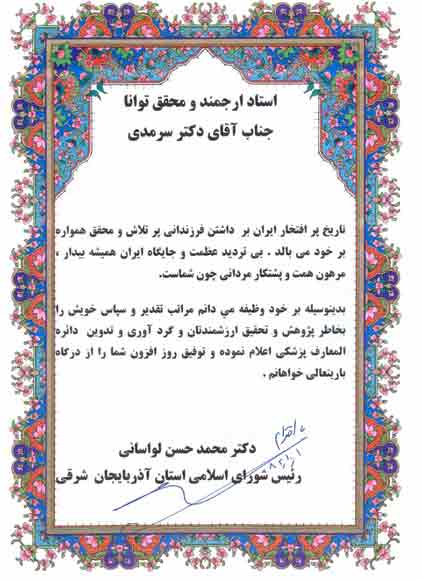 استاد ارجمند و محقق توانا
جناب آقای دکتر سرمدی
تاریخ پر افتخار ایران بر داشتن فرزندانی پر تلاش و محقق همواره
بر خود می بالد . بی تردید عظمت و جایگاه ایران همیشه بیدار ،
مرهون همت و پشتکار مردانی چون شماست.
بدینوسیله بر خود وظیفه می دانم مراتب تقدیر و سپاس خویش را
بخاطر پژوهش و تحقیق ارزشمندتان و گرد آوری و تدوین دائره
المعارف پزشکی اعلام نموده و توفیق روز افزون شما را از درگاه
باریتعالی خواهانم .
با احترام
دکتر محمد حسن لواسانی
رئیس شورای اسلامی استان آذربایجان شرقی